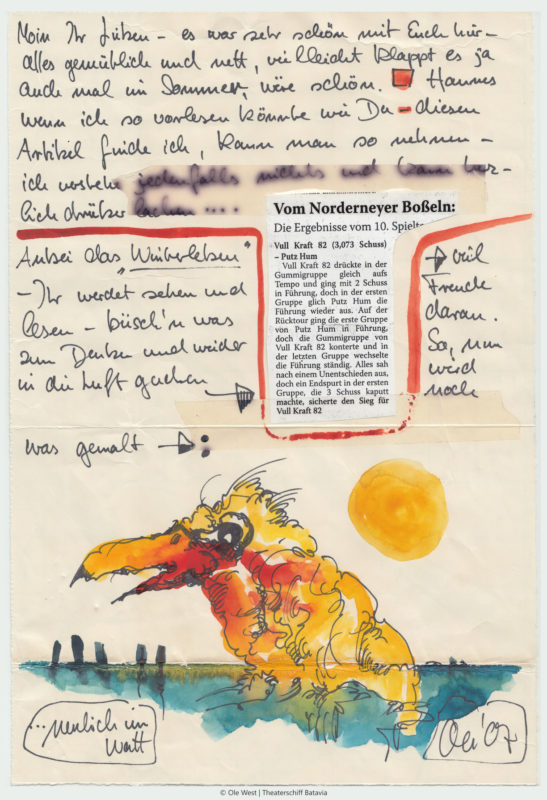 Moin Ihr Lieben – es war sehr schön mit Euch hier –
alles gemütlich und nett, vielleicht klappt es ja
auch mal im Sommer, wäre schön. Hannes
wenn ich so vorlesen könnte wie Du – diesen
Artikel finde ich, kann man so nehmen –
ich verstehe jedenfalls nichts und kann herz-
lich drüber lachen ....
Vom Norderneyer Boßeln:
Die Ergebnisse vom 10. Spielta
Vull Kraft 82 (3,073 Schuss)
– Putz Hum
Vull Kraft 82 drückte in der
Gummigruppe gleich aufs
Tempo und ging mit 2 Schuss
in Führung, doch in der ersten
Gruppe glich Putz Hum die
Führung wieder aus. Auf der
Rücktour ging die erste Gruppe
von Putz Hum in Führung,
doch die Gummigruppe von
Vull Kraft 82 konterte und in
der letzten Gruppe wechselte
die Führung ständig. Alles sah
nach einem Unentschieden aus,
doch ein Endspurt in der ersten
Gruppe, die 3 Schuss kaputt
machte, sicherte den Sieg für
Vull Kraft 82
Anbei das "Winterleben"
– Ihr werdet sehen und
lesen – büsch'n was
zum Denken und wieder
in die Luft gucken
viel
Freude
daran.
So, nun
wird
noch
was gemalt :
... neulich im
Watt
Ole '07
© Ole West | Theaterschiff Batavia